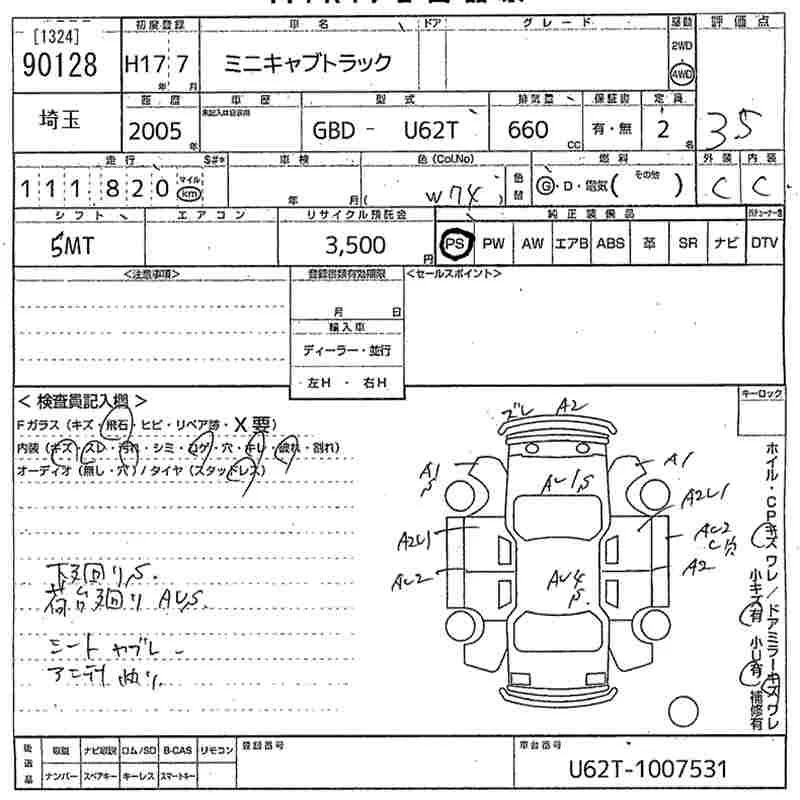 [1324]
90128
初度登録
車名
ドア
グレード
駆動
評価点
H17 7
年 月
ミニキャブトラック
2WD
4WD
埼玉
車歴
型式
排気量
保証書
定員
35
2005
年
GBD - U62T
660
CC
有・無
2
名
走行
S#*
車検
色(Col.No)
燃料
外装
内装
111820
マイル
km
年 月
(W74)
色替
G・D・電気(その他)
C
C
シフト
エアコン
リサイクル預託金
純正装備品
5MT
3,500
円
PS
PW
AW
エアB
ABS
革
SR
ナビ
DTV
<注意事項>
登録書類有効期限
<セールスポイント>
月 日
輸入車
ディーラー・並行
左H ・ 右H
<検査員記入欄>
キーロック
Fガラス(キズ・飛石・ヒビ・リペア跡・X要)
内装(キズ・スレ・汚れ・シミ・コゲ・穴・キレ・破れ・割れ)
オーディオ(無し・穴)/タイヤ(スタッドレス)
ズレ
A2
A1
S
AU1,S
A1
A2U1
A2U1
AU2
AU2
AU4
S
A2
下廻りS.
荷台廻りAUS.
シートヤブレ
ホイル・CPキズ ワレ/ドアミラーキズ ワレ
小キズ有 小U有 補修有
後送品
取説
ナビ取説
ロム/SD
B-CAS
リモコン
ナンバー
スペアキー
キーレス
スマートキー
登録番号
車台番号
U62T-1007531